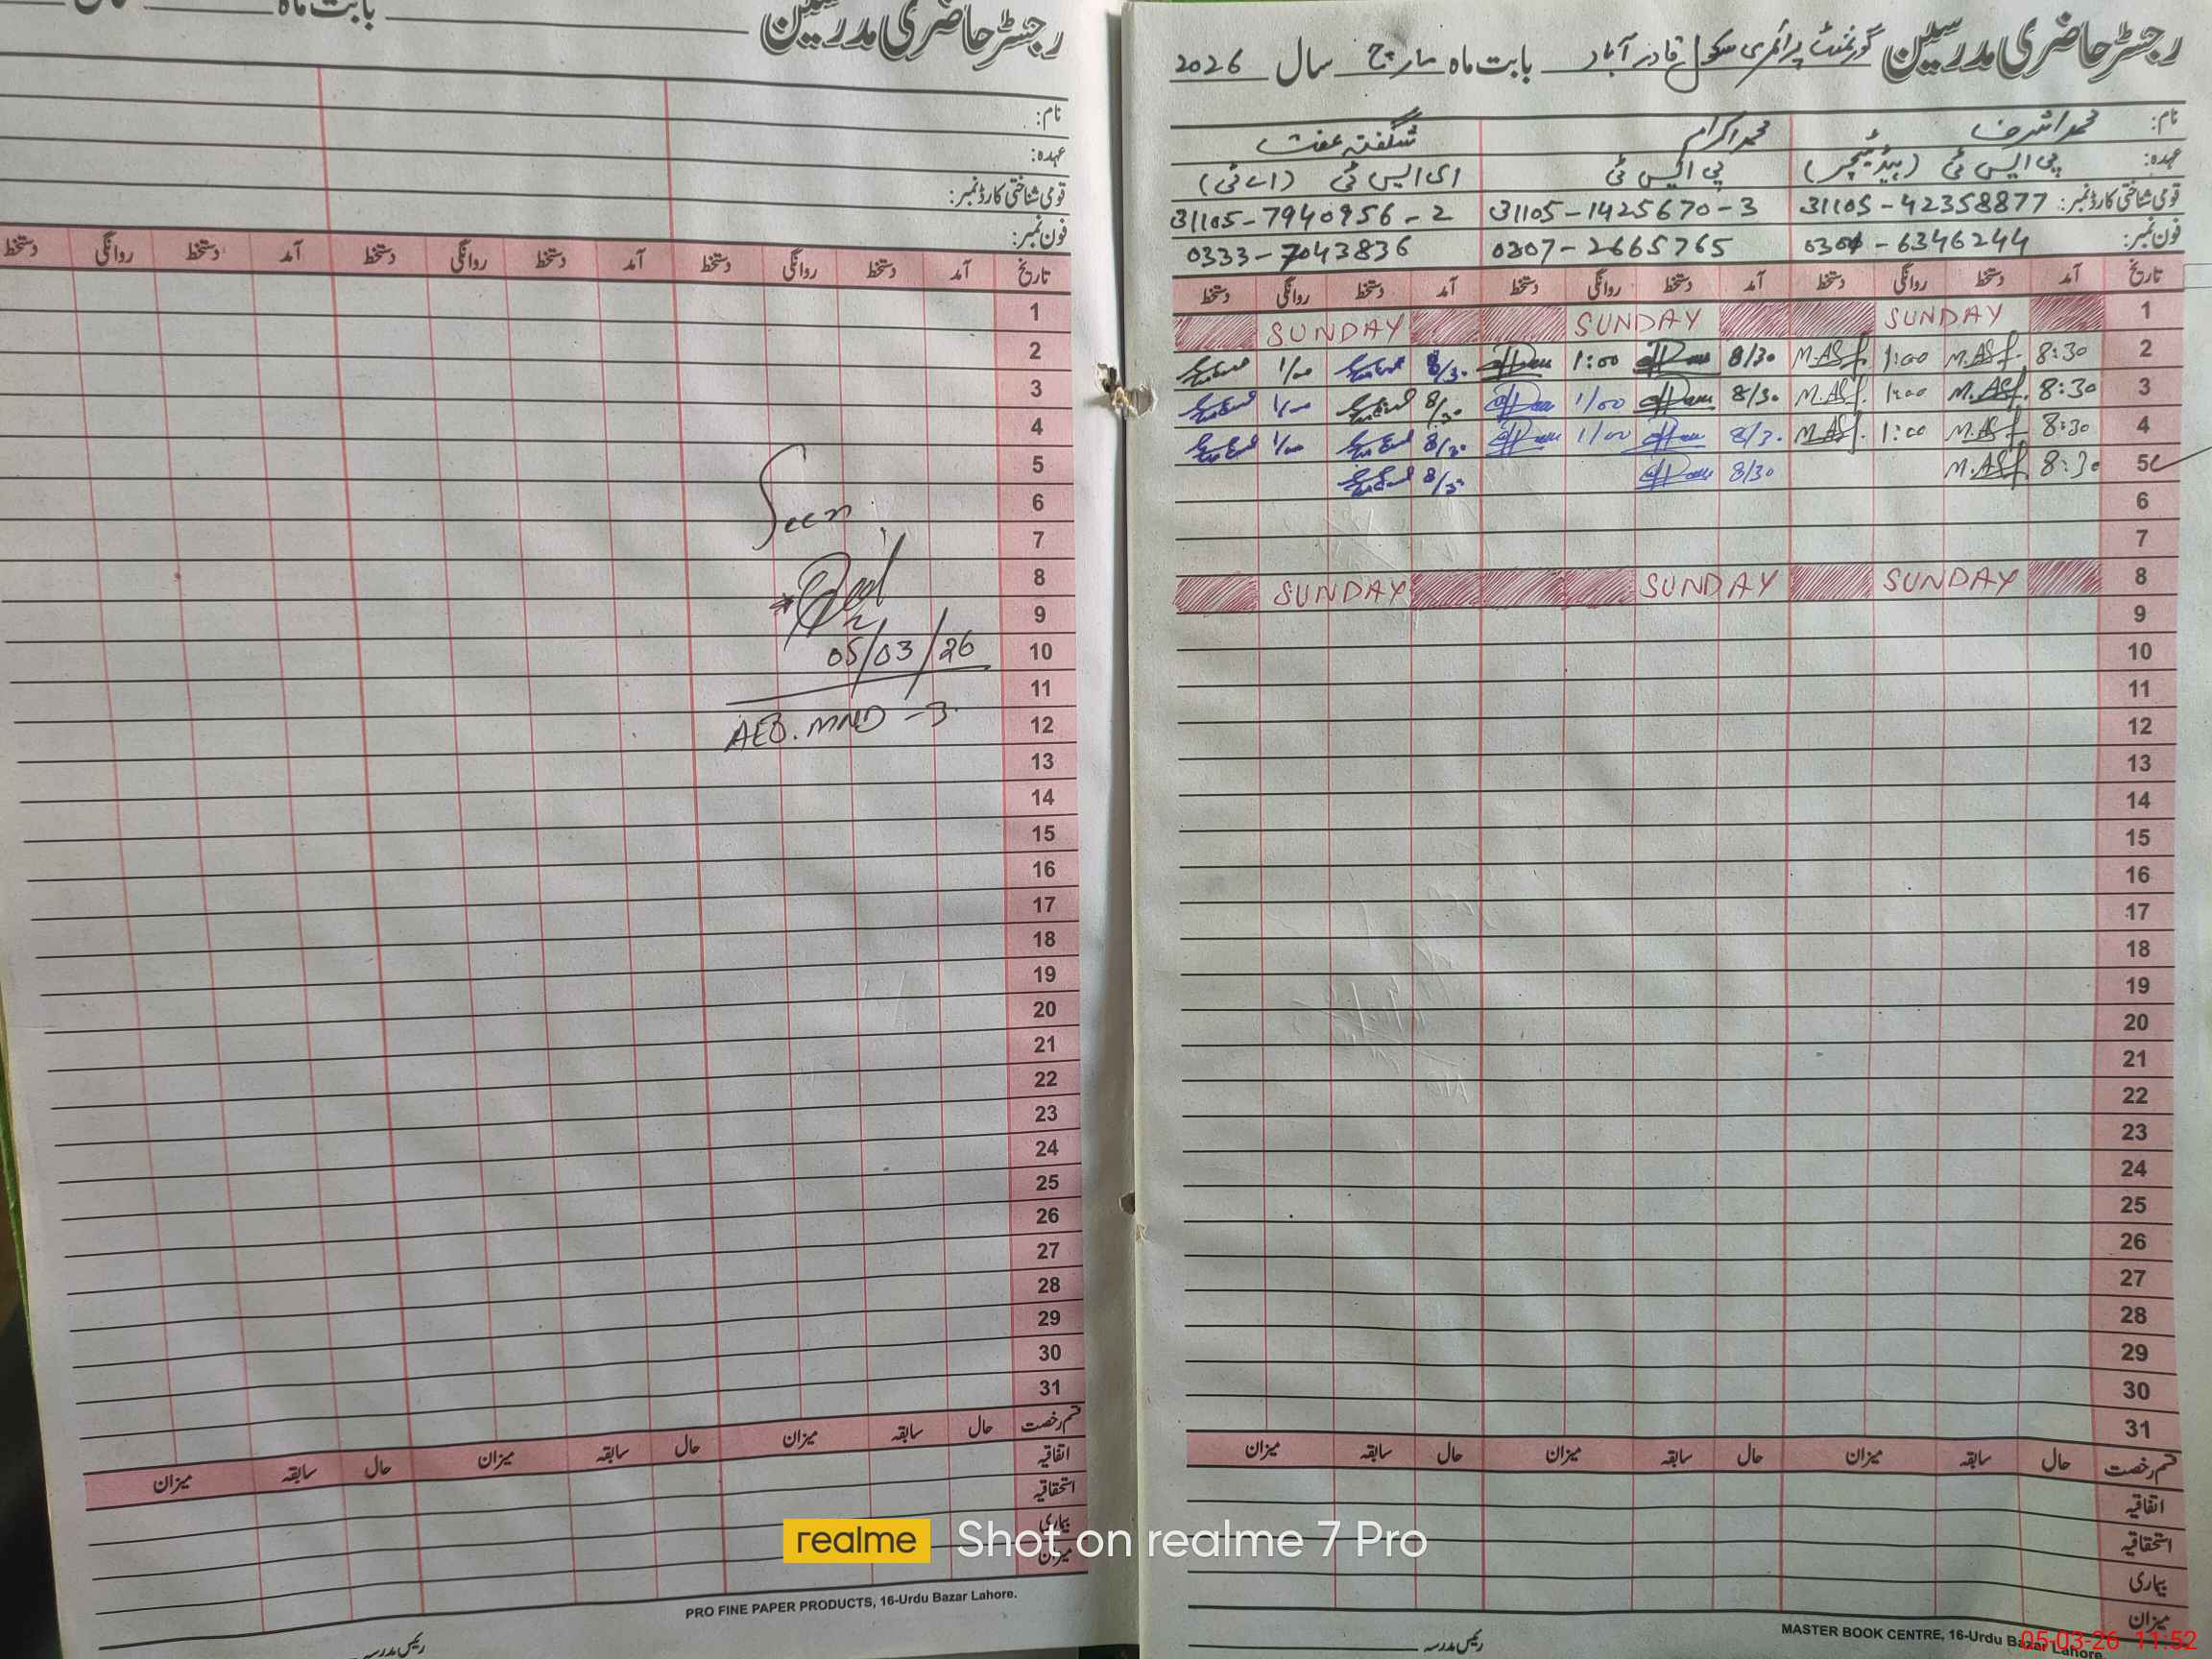 رجسٹر حاضری مدرسین گورنمنٹ پرائمری سکول قادر آباد بابت ماہ مارچ سال 2026
نام: محمد اشرف محمد اکرام شگفتہ عفت
عہدہ: پی ایس ٹی (ہیڈ ٹیچر) پی ایس ٹی ای ایس ٹی (اے ٹی)
قومی شناختی کارڈ نمبر: 31105-42358877 31105-1425670-3 31105-7940956-2
فون نمبر: 6346244 0307-2665765 0333-7043836
تاریخ آمد دستخط روانگی دستخط آمد دستخط روانگی دستخط آمد دستخط روانگی دستخط
1 SUNDAY SUNDAY SUNDAY
2 8:30 M.Asf. 1:00 M.Asf. 8/30 1:00 8/30 1/00
3 8:30 M.Asf. 1:00 M.Asf. 8/30 1/00 8/30 1/00
4 8:30 M.Asf. 1:00 M.Asf. 8/30 1/00 8/30 1/00
5 8:30 M.Asf. 8/30 8/30
6
7
8 SUNDAY SUNDAY SUNDAY
9
10
11
12
13
14
15
16
17
18
19
20
21
22
23
24
25
26
27
28
29
30
31
قسم رخصت حال سابقہ میزان حال سابقہ میزان حال سابقہ میزان
اتفاقیہ
استحقاقیہ
بیماری
میزان
رئیس مدرسہ
MASTER BOOK CENTRE, 16-Urdu Bazar Lahore.
رجسٹر حاضری مدرسین بابت ماہ
نام:
عہدہ:
قومی شناختی کارڈ نمبر:
فون نمبر:
تاریخ آمد دستخط روانگی دستخط آمد دستخط روانگی دستخط آمد دستخط روانگی دستخط
1
2
3
4
5
6 Seen
7
8
9
10 05/03/26
11
12 AEO. MND-3.
13
14
15
16
17
18
19
20
21
22
23
24
25
26
27
28
29
30
31
قسم رخصت حال سابقہ میزان حال سابقہ میزان حال سابقہ میزان
اتفاقیہ
استحقاقیہ
بیماری
میزان
PRO FINE PAPER PRODUCTS, 16-Urdu Bazar Lahore.
رئیس مدرسہ
realme Shot on realme 7 Pro
05-03-26 11:52